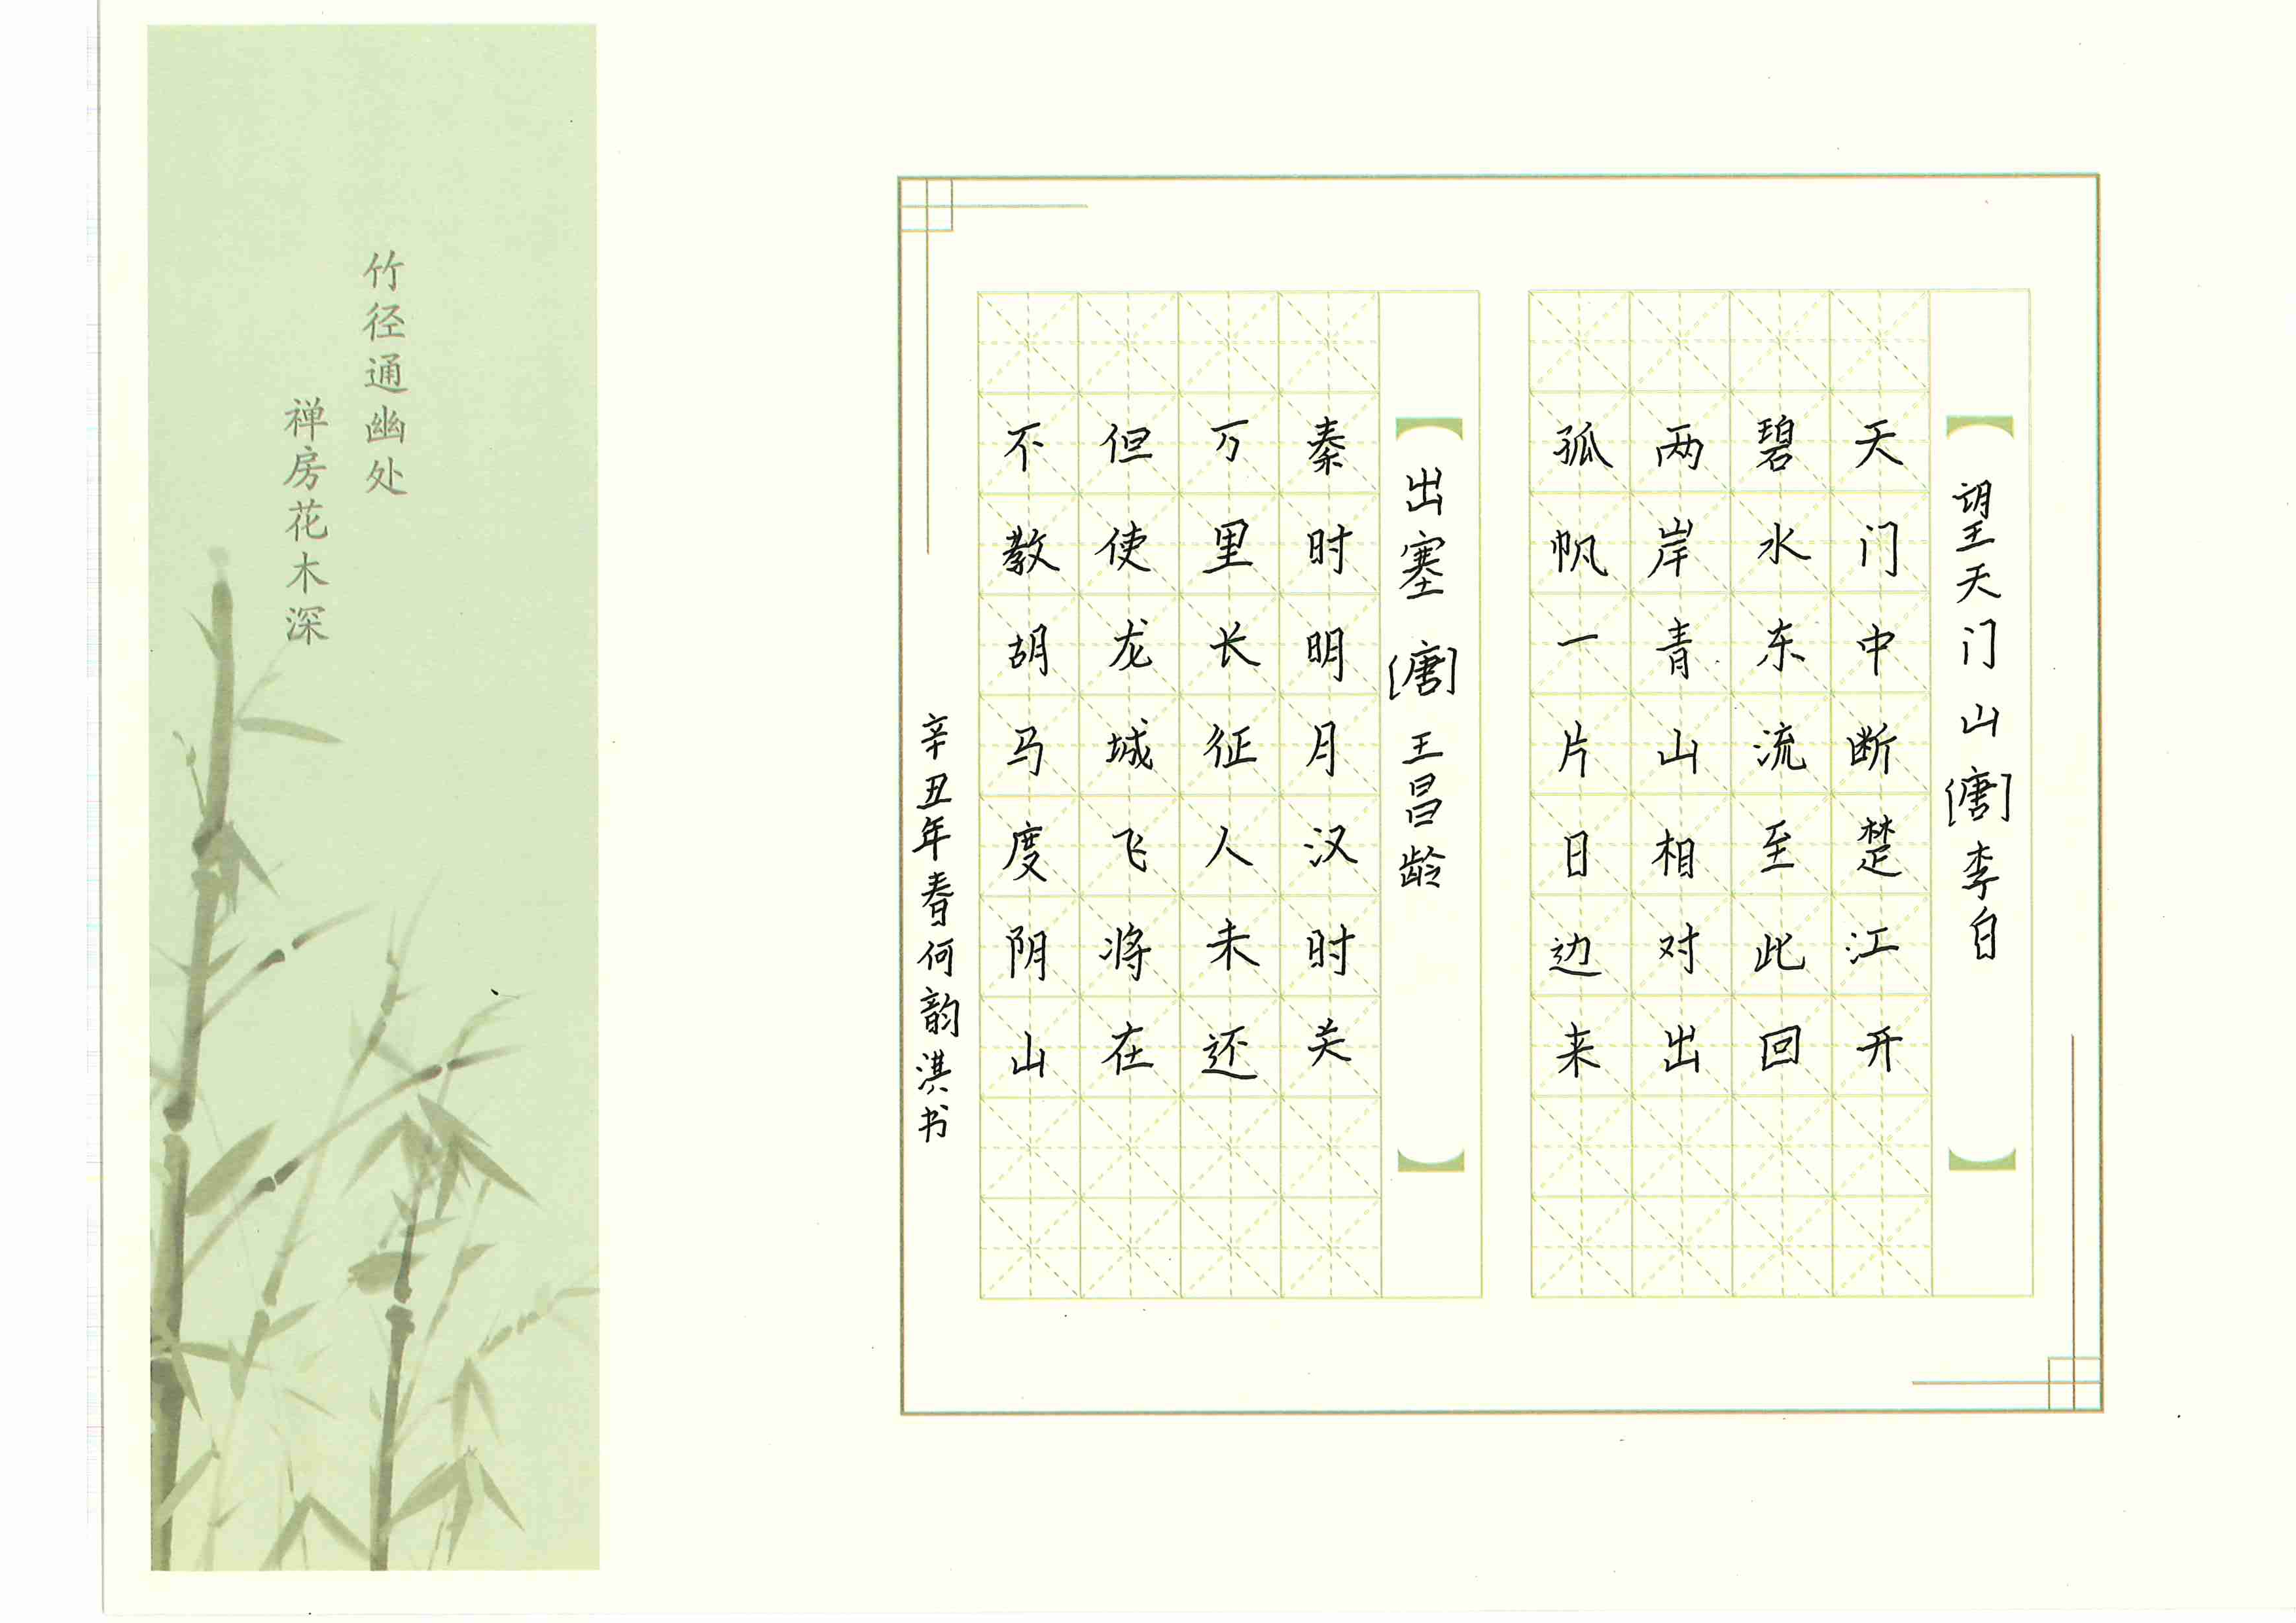 望天门山[唐]李白
天门中断楚江开
碧水东流至此回
两岸青山相对出
孤帆一片日边来
出塞 [唐]王昌龄
秦时明月汉时关
万里长征人未还
但使龙城飞将在
不教胡马度阴山
辛丑年春何韵淇书
竹径通幽处
禅房花木深